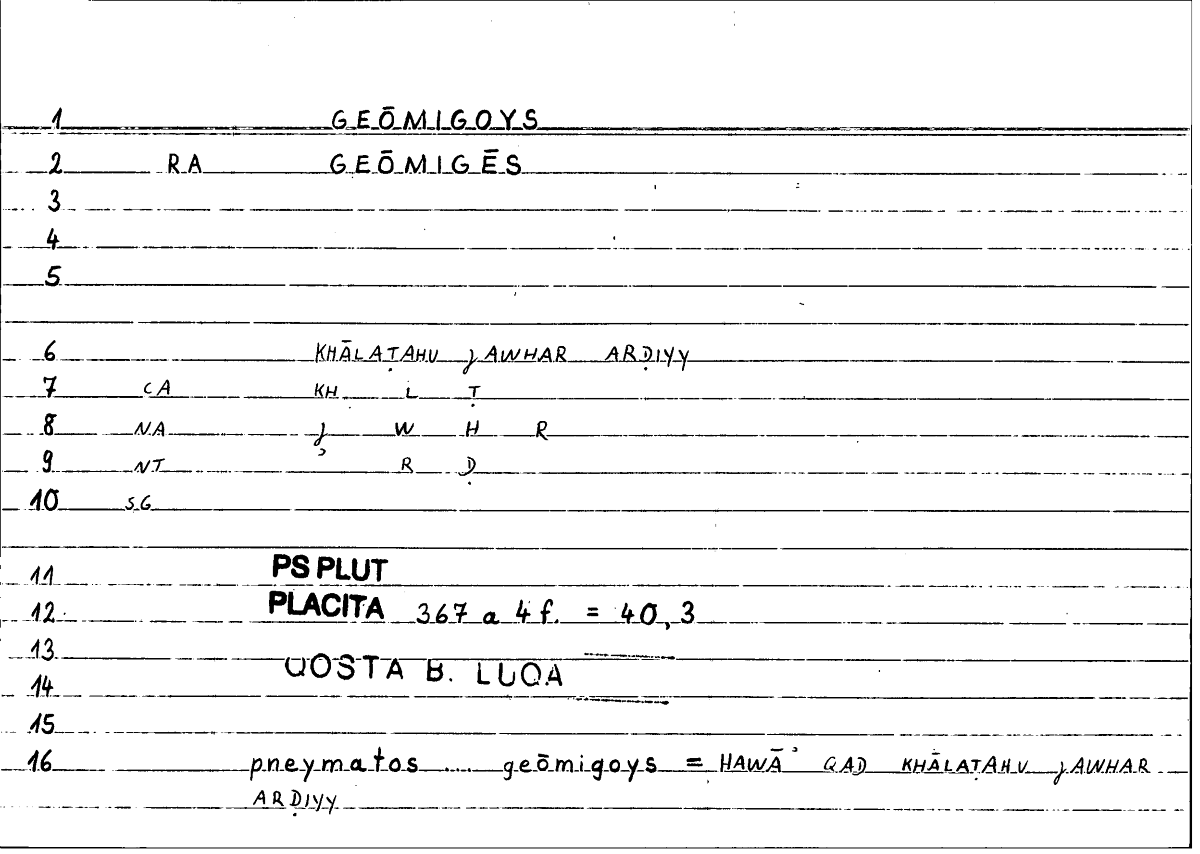 1 GEŌMIGOYS
2 RA GEŌMIGĒS
3
4
5
6 KHĀLAṬAHU ǦAWHAR ARḌIYY
7 CA KH L Ṭ
8 NA Ǧ W H R
9 NT R Ḍ
10 SG
11 PS PLUT
12 PLACITA 367 a 4 f. = 40,3
13
QOSTA B. LUQA
14
15
16 pneymatos .... geōmigoys = HAWĀʾ QAD KHĀLAṬAHU ǦAWHAR
ARḌIYY